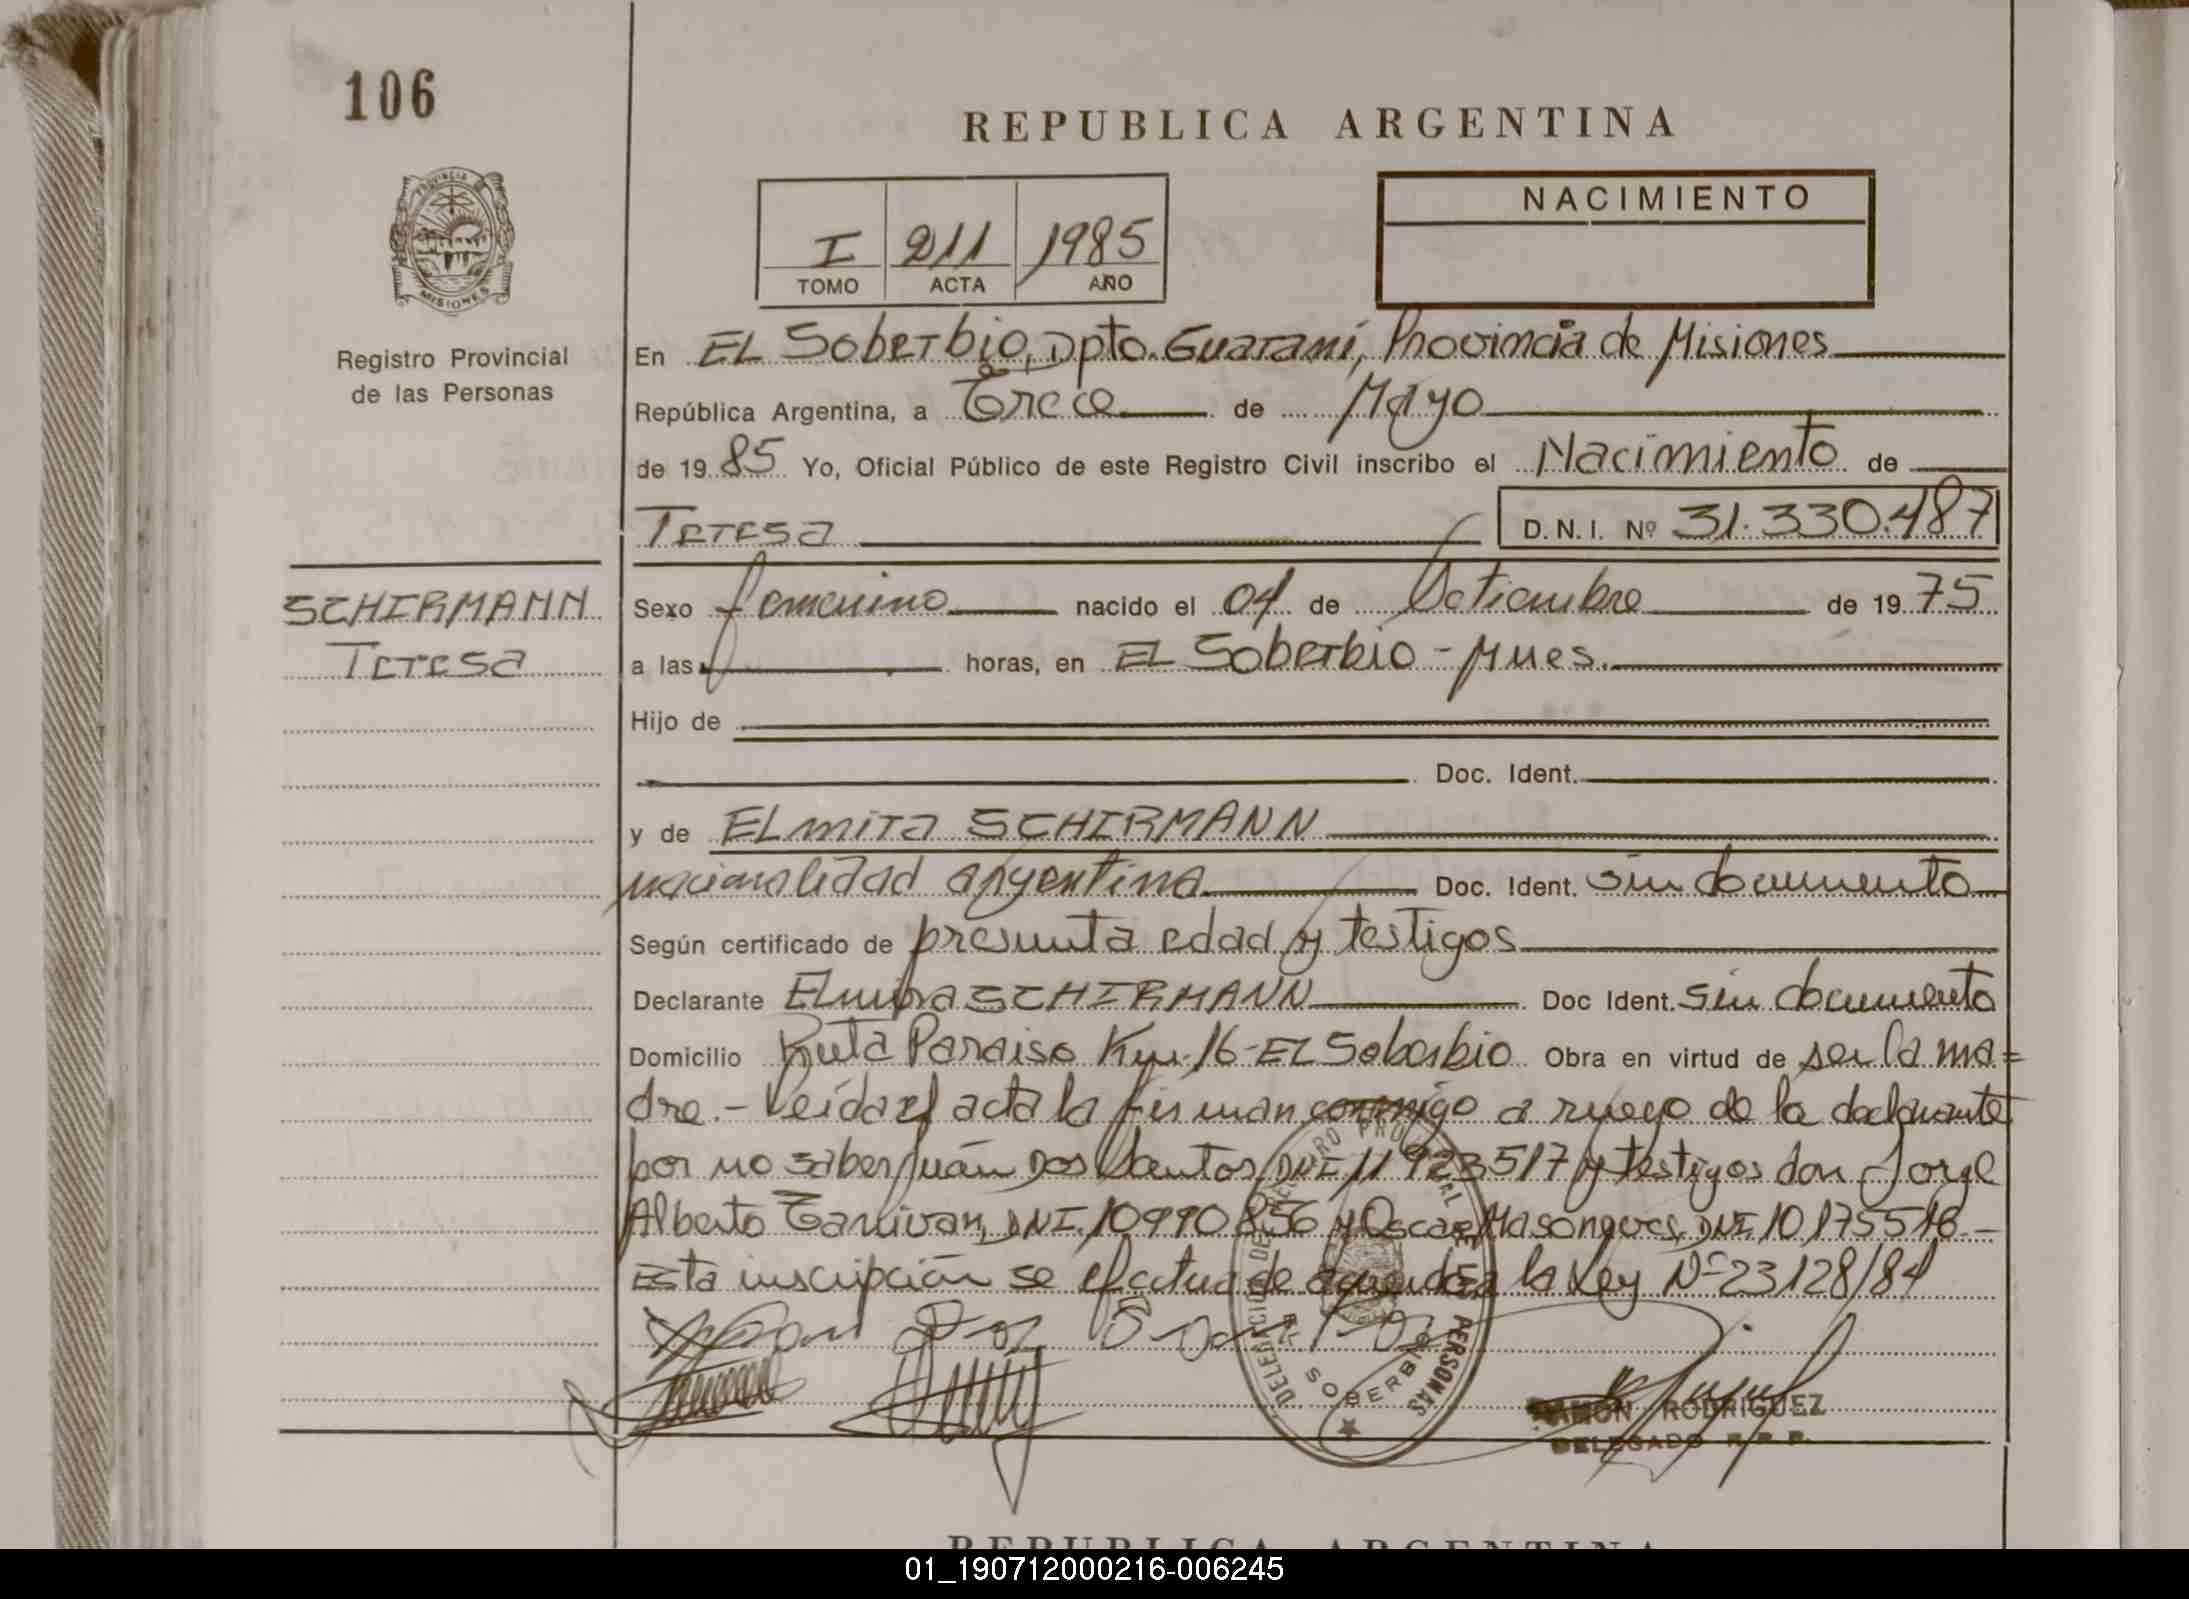 106
REPUBLICA ARGENTINA
PROVINCIA DE
MISIONES
Registro Provincial
de las Personas
NACIMIENTO
I 211 1985
TOMO ACTA AÑO
En EL Soberbio, Dpto. Guaraní, Provincia de Misiones
República Argentina, a Trece de Mayo
de 1985 Yo, Oficial Público de este Registro Civil inscribo el Nacimiento de
Teresa D.N.I. Nº 31.330.487
SCHIRMANN
Teresa
Sexo femenino nacido el 04 de Setiembre de 1975
a las horas, en EL Soberbio - Mnes.
Hijo de
Doc. Ident.
y de ELmira SCHIRMANN
nacionalidad argentina Doc. Ident. sin documento
Según certificado de presunta edad y testigos
Declarante Elmira SCHIRMANN Doc Ident. sin documento
Domicilio Ruta Paraiso Km. 16 - EL Soberbio Obra en virtud de ser la ma=
dre.- Leída el acta la firman conmigo a ruego de la declarante
por no saber Juán Dos Santos, DNI. 11 923517 y testigos don Jorge
Alberto DNI. 10990856 y Oscar DNI. 10175516.-
Esta inscripción se efectua de acuerdo a la Ley Nº 23128/84
Juan Dos Santos
DELEGACION DEL REGISTRO PROVINCIAL DE LAS PERSONAS
EL SOBERBIO
RAMON RODRIGUEZ
DELEGADO R.P.P.
REPUBLICA ARGENTINA
01_190712000216-006245